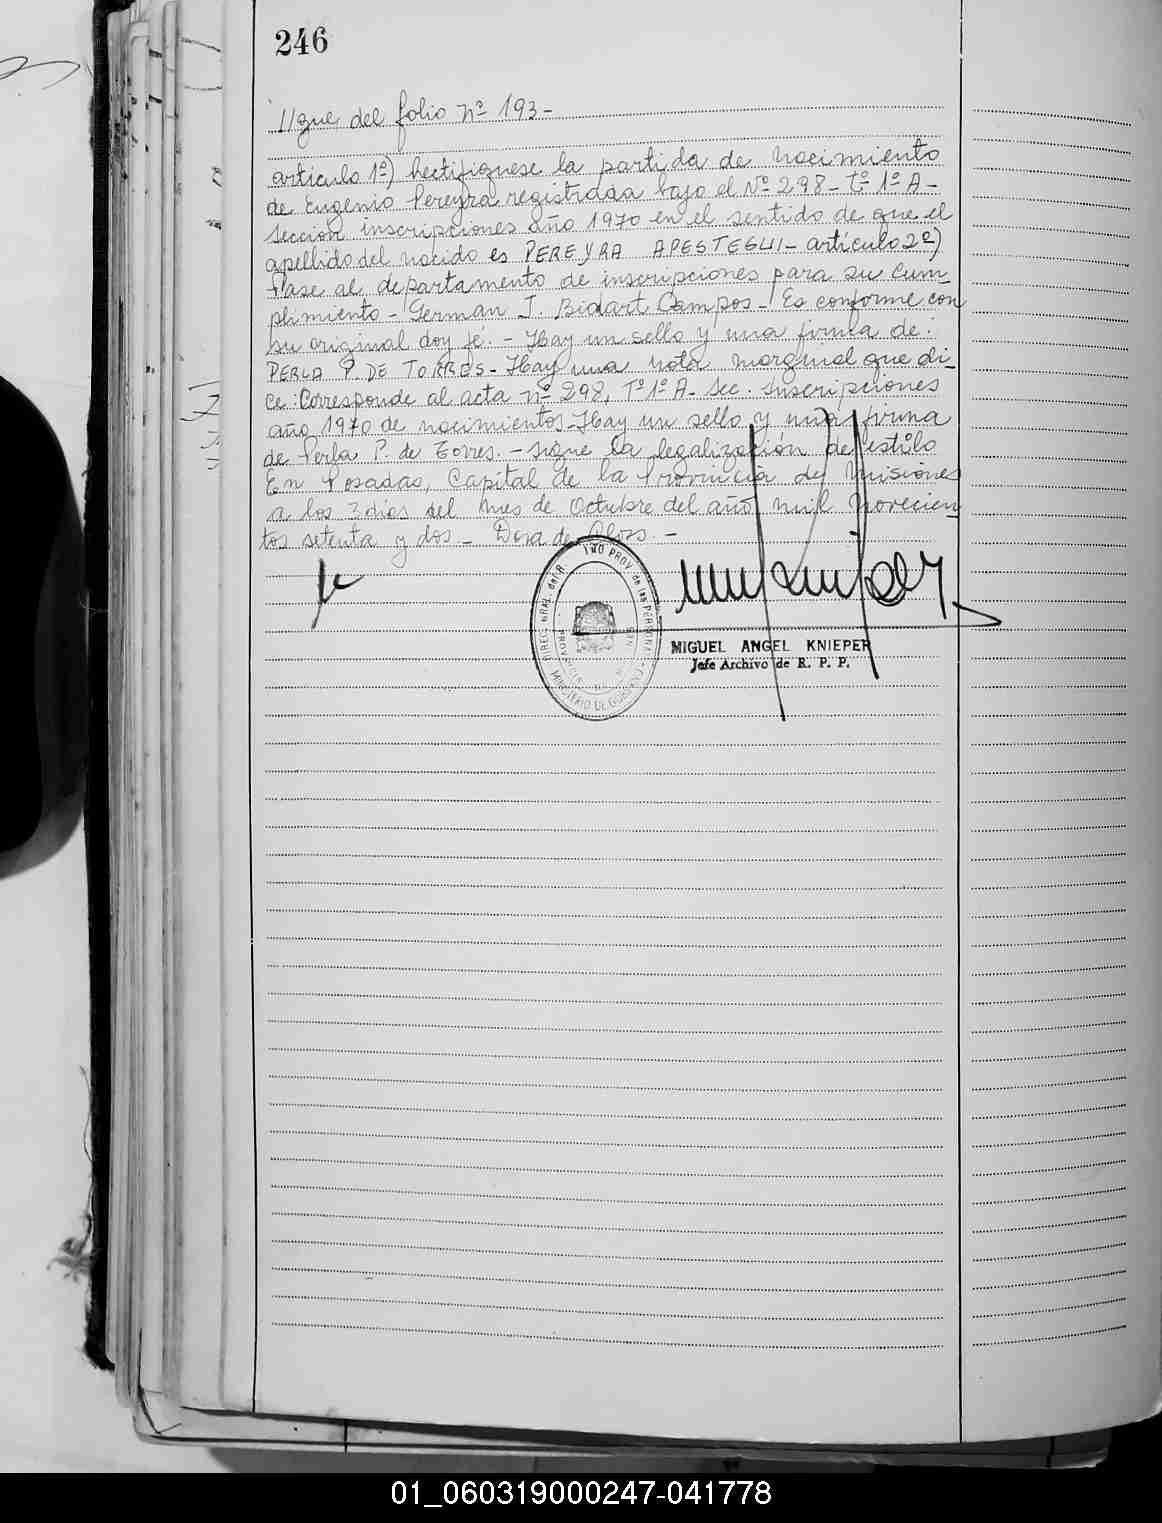 246
//gue del folio nº 193-
artículo 1º) Rectifíquese la partida de nacimiento
de Eugenio Pereyra registrada bajo el Nº 298-Tº 1º A-
sección inscripciones año 1970 en el sentido de que el
apellido del nacido es PEREYRA APESTEGUI- artículo 2º)
Pase al departamento de inscripciones para su cum-
plimiento- German J. Bidart Campos- Es conforme con
su original doy fé.- Hay un sello y una firma de:
PERLA P. DE TORRES- Hay una nota marginal que di-
ce: Corresponde al acta nº 298, Tº 1º A- sec. inscripciones
año 1970 de nacimientos- Hay un sello y una firma
de Perla P. de Torres.- sigue la legalización de estilo
En Posadas, Capital de la Provincia de Misiones
a los 3 días del mes de Octubre del año mil novecien
tos setenta y dos-
MIGUEL ANGEL KNIEPER
Jefe Archivo de R. P. P.
MINISTERIO DE GOBIERNO
01_060319000247-041778